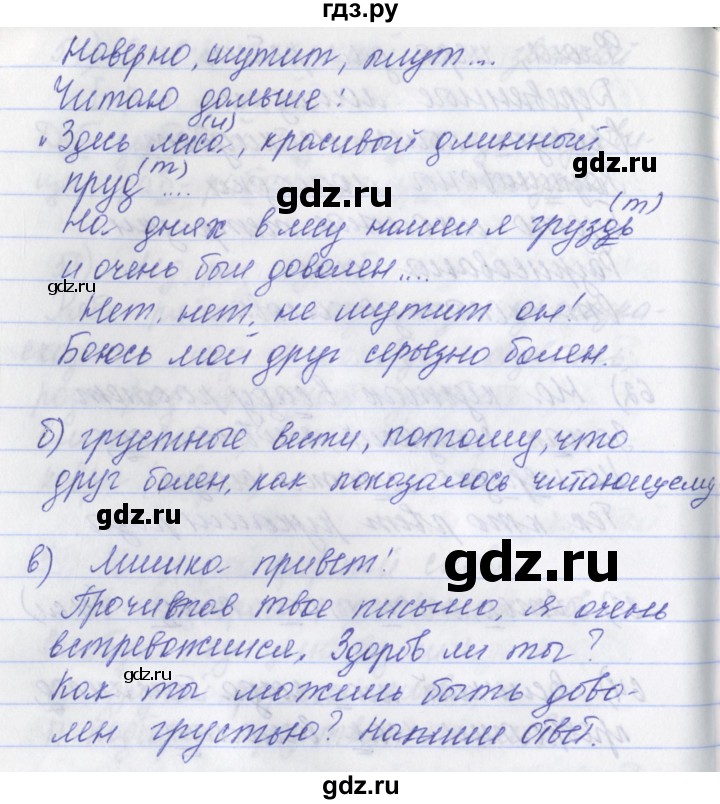 гдз.ру
Наверно, шутит, плут...
Читаю дальше:
"Здесь леса(и), красивый длинный
пруд(т)....
gdz.ru
На днях в лесу нашел я груздь(т)
и очень был доволен....
gdz.ru
Нет, нет, не шутит он!
Боюсь мой друг серьезно болен.
gdz.ru
б) грустные вести, потому, что
друг болен, как показалось читающему
gdz.ru
в) Мишка привет!
gdz.ru
Прочитав твое письмо, я очень
встревожился. Здоров ли ты?
gdz.ru
Как ты можешь быть дово-
лен грустью? Напиши ответ.
gdz.ru
gdz.ru